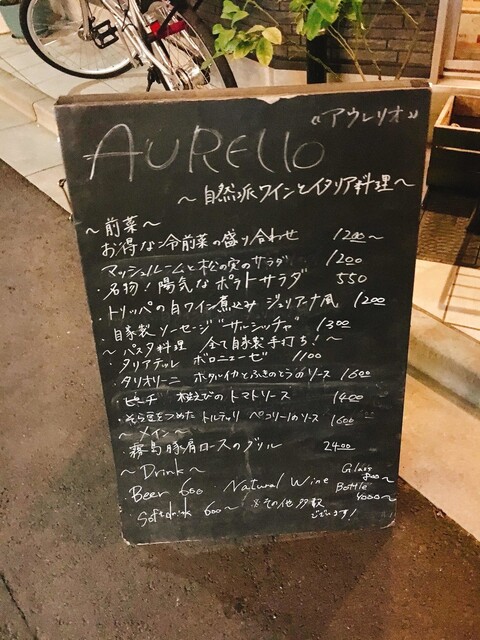 《アウレリオ》
AURELIO
〜自然派ワインとイタリア料理〜
〜前菜〜
お得な冷前菜の盛り合わせ 1200〜
マッシュルームと松の実のサラダ 1200
・名物！陽気なポテトサラダ 550
・トリッパの白ワイン煮込み ジェノアーナ風 1200
・自家製ソーセージ"サルシッチャ" 1300
〜パスタ料理 全て自家製手打ち！〜
・タリアテッレ ボロニェーゼ 1100
タリオリーニ ホタルイカとふきのとうのソース 1600
・ピーチ 桜えびのトマトソース 1400
・そら豆をつめたトルテッリ ペコリーノのソース 1600
〜メイン〜
・霧島豚肩ロースのグリル 2400
〜Drink〜
・Beer 600 ・Natural Wine Glass 800〜
Bottle 4000〜
・Soft drink 600〜 ※その他多数
ございます！